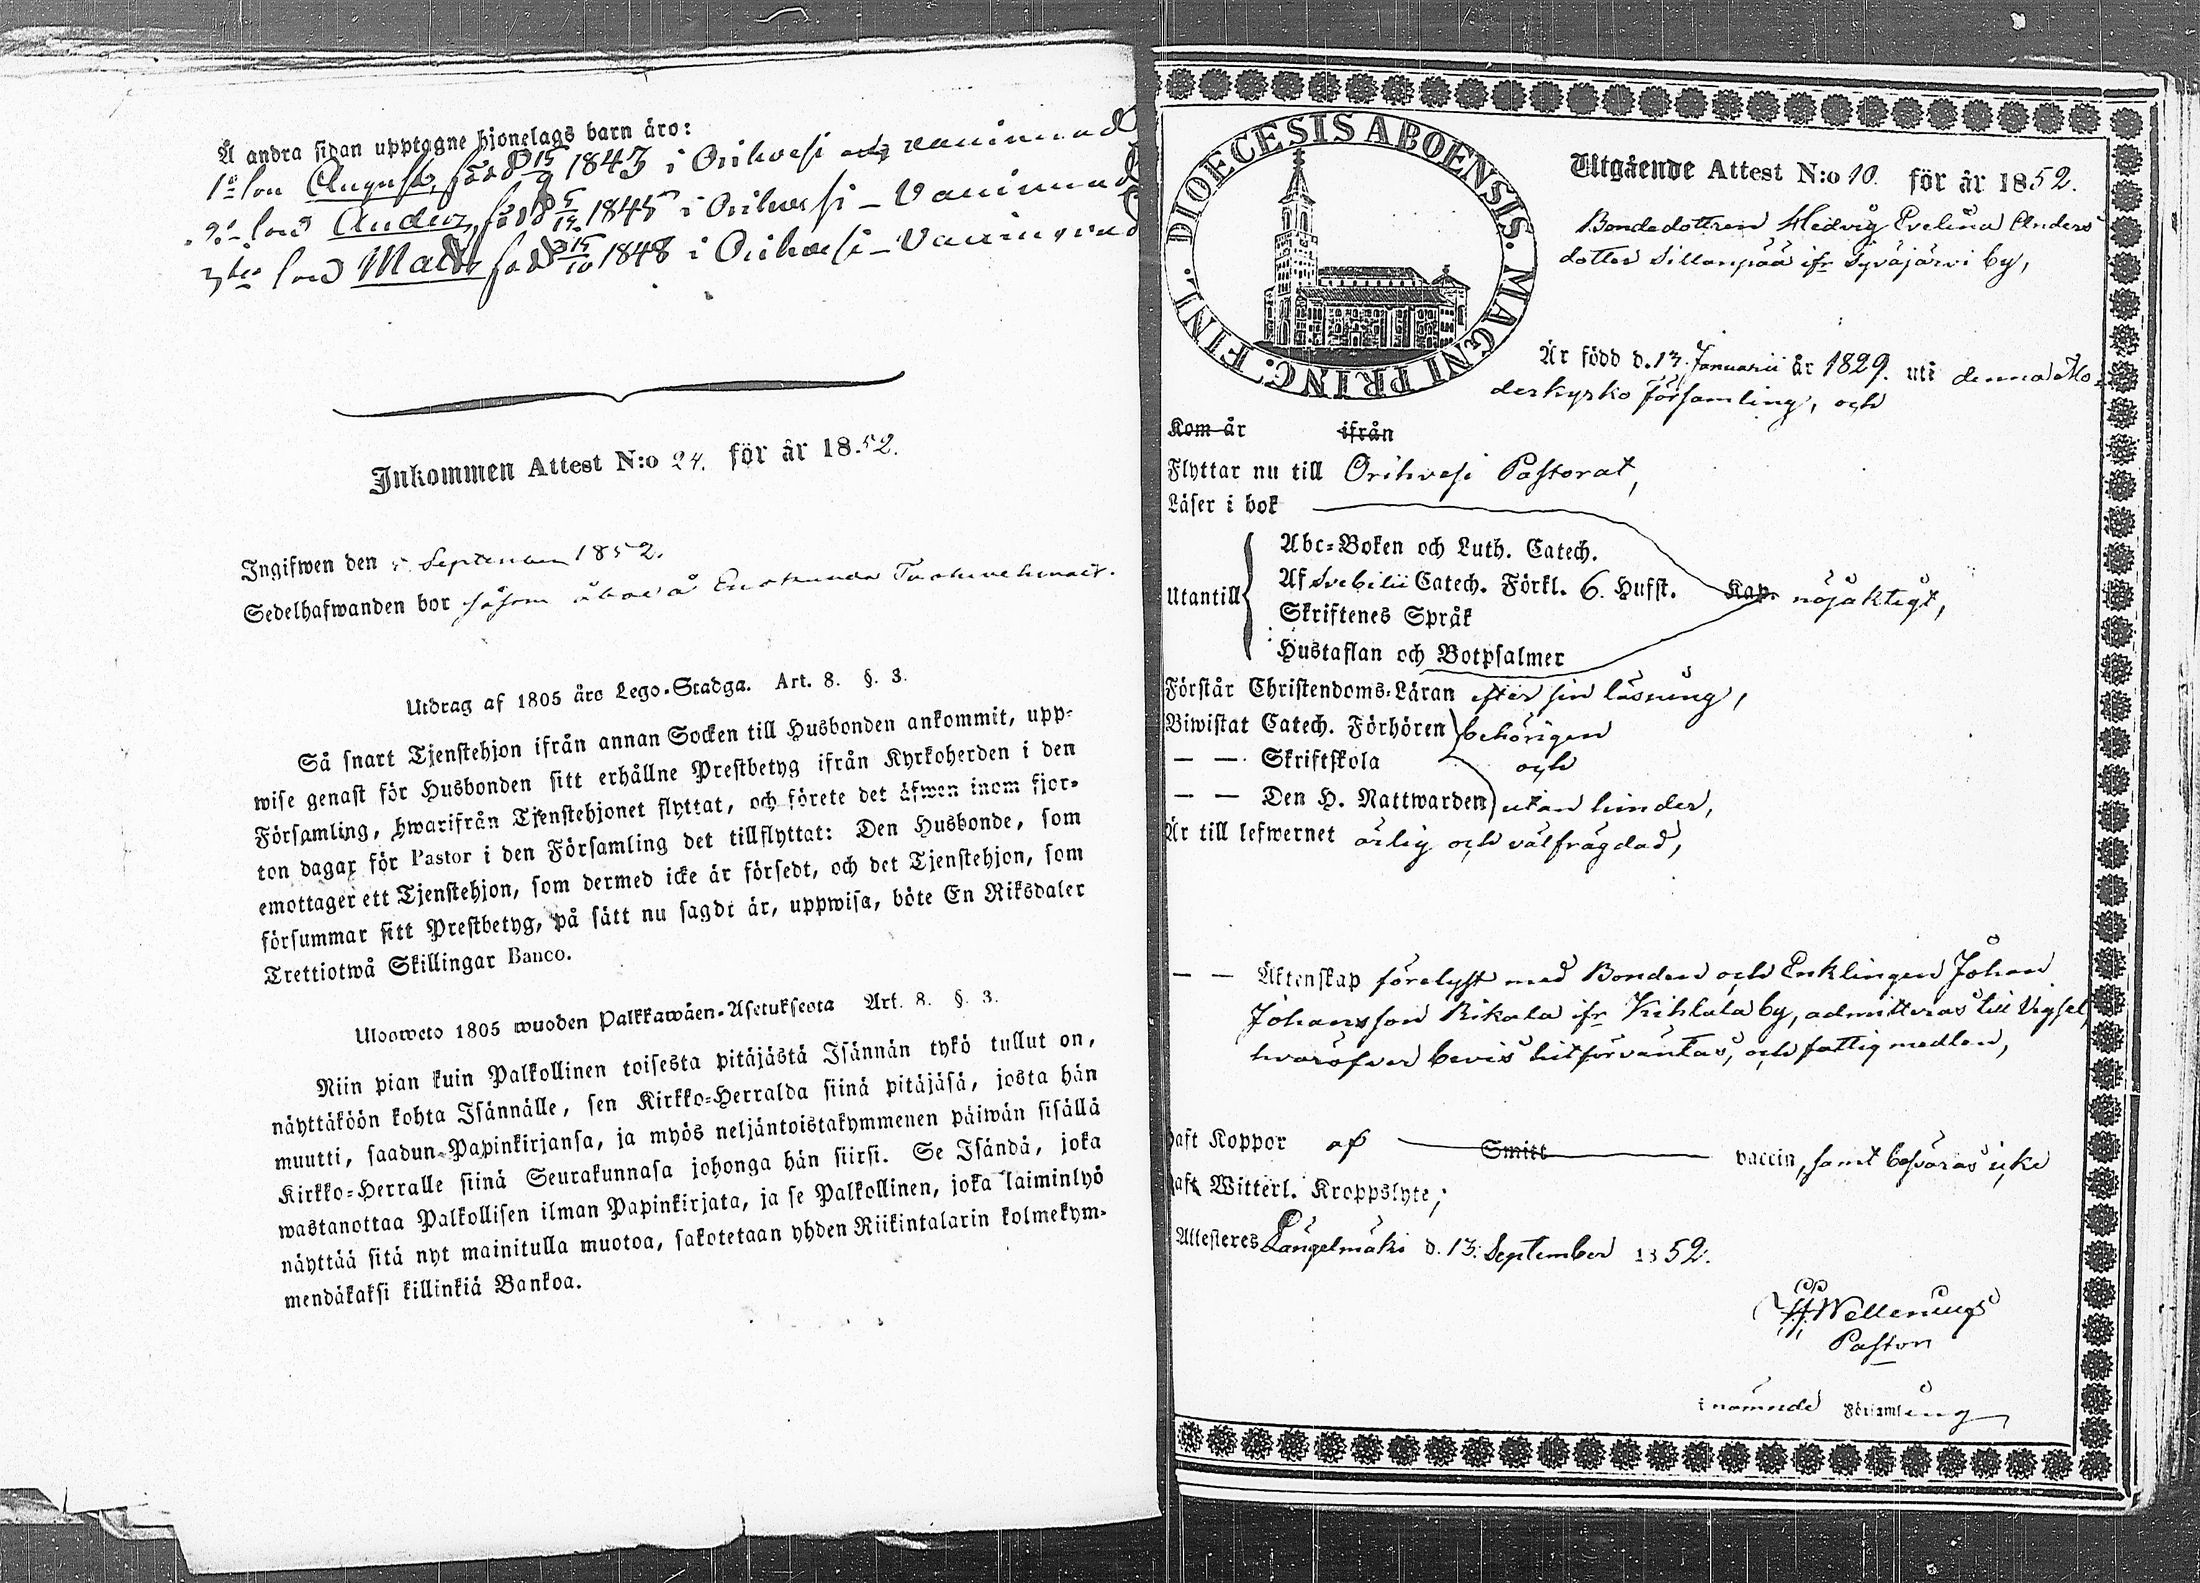 Å andra sidan upptagne hjonelags barn äro:
1o son August, född 15/9 1843 i Orihvesi och vaccinerad
2o son Anders, född 5/12 1845 i Orihvesi – Vaccinerad
3tie son Mats född 15/10 1848 i Orihvesi – Vaccinerad
Inkommen Attest N:o 24. för år 1852.
Ingifwen den 5 September 1852.
Sedelhafwanden bor såsom åboe å
Utdrag af 1805 års Lego-Stadga. Art. 8. §. 3.
Så snart Tjenstehjon ifrån annan Socken till Husbonden ankommit, upp-
wise genast för Husbonden sitt erhållne Prestbetyg ifrån Kyrkoherden i den
Församling, hwarifrån Tjenstehjonet flyttat, och förete det äfwen inom fjor-
ton dagar för Pastor i den Församling det tillflyttat: Den Husbonde, som
emottager ett Tjenstehjon, som dermed icke är försedt, och det Tjenstehjon, som
försummar sitt Prestbetyg, på sätt nu sagdt är, uppwisa, böte En Riksdaler
Trettiotwå Skillingar Banco.
Ulosweto 1805 wuoden Palkkawäen-Asetuksesta Art. 8. §. 3.
Niin pian kuin Palkollinen toisesta pitäjästä Isännän tykö tullut on,
näyttäköön kohta Isännälle, sen Kirkko-Herralda siinä pitäjäsä, josta hän
muutti, saadun Papinkirjansa, ja myös neljäntoistakymmenen päiwän sisällä
Kirkko-Herralle siinä Seurakunnasa johonga hän siirsi. Se Isändä, joka
wastanottaa Palkollisen ilman Papinkirjata, ja se Palkollinen, joka laiminlyö
näyttää sitä nyt mainitulla muotoa, sakotetaan yhden Riikintalarin kolmekym-
mendäkaksi killinkiä Bankoa.
DIOECESIS ABOENSIS. MAGNI PRINC. FINL.
Utgående Attest N:o 10. för år 1852.
Bondedottren Hedvig Evelina Anders
dotter Sillanpää ifr Syväjärvi by,
Är född d. 13. Januarii år 1829. uti denna Mo-
derkyrko församling, och
Kom år ifrån
Flyttar nu till Orihvesi Pastorat,
Läser i bok
Abc-Boken och Luth. Catech.
Utantill Af Svebilii Catech. Förkl. 6. Hufst. Kap. nöjaktigt,
Skriftenes Språk
Hustaflan och Botpsalmer
Förstår Christendoms-Läran efter sin läsning,
Biwistat Catech. Förhören behörigen
— — Skriftskola och
— — Den H. Nattwarden utan hinder,
Är till lefwernet ärlig och välfrägdad,
— — Äktenskap förelyst med Bonden och Enklingen Johan
Johansson Rikala ifr Kihlala by, admitteras till Vigsel,
hvaröfver bevis hitförväntas, och fattigmedlen,
Haft Koppor af Smitt vaccin, samt besväras icke
af Witterl. Kroppslyte;
Attesteres Längelmäki d. 13. September 1852.
Wellenius
Pastor
i nämnde Församling